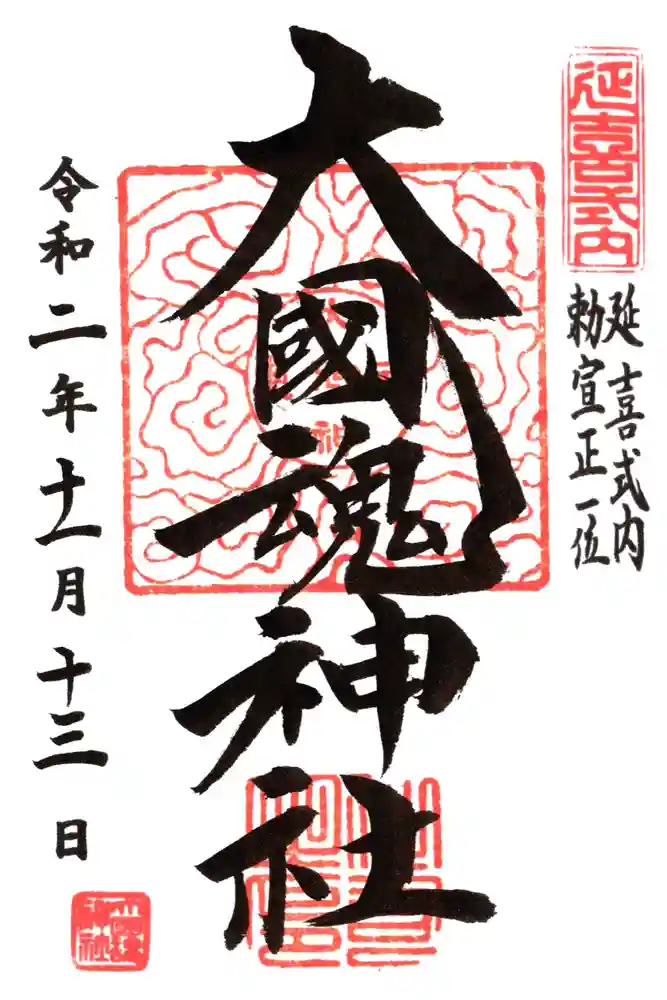 延喜式内
延喜式内
勅宣正一位
大國魂神社
令和二年十一月十三日